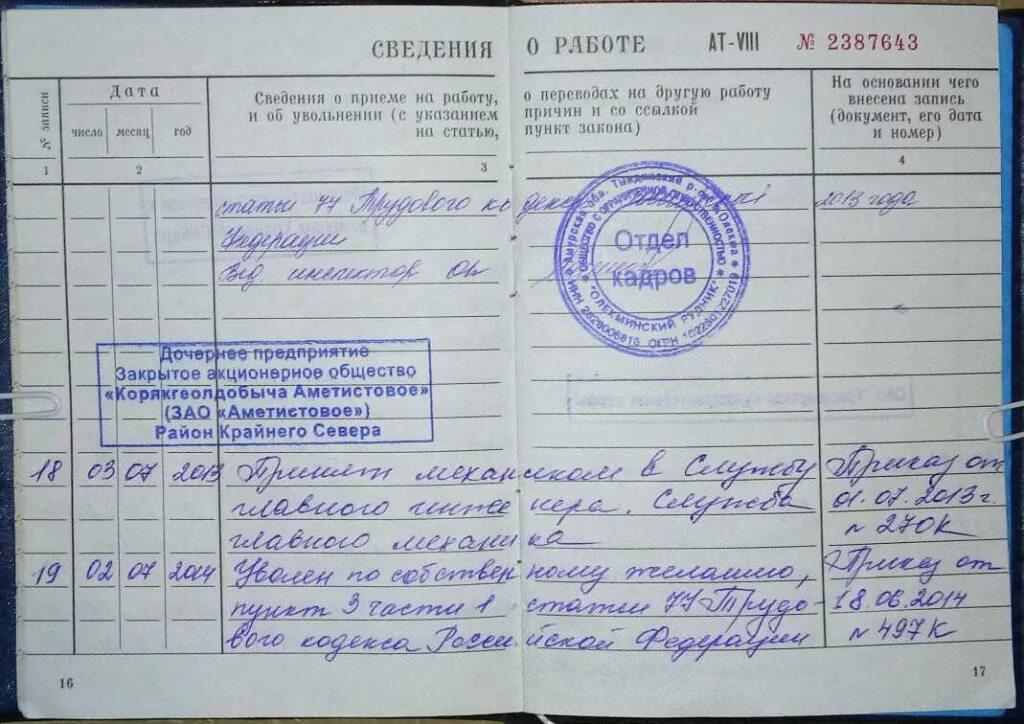 СВЕДЕНИЯ О РАБОТЕ АТ-VIII № 2387643
№ записи
Дата
число месяц год
Сведения о приеме на работу, о переводах на другую работу
и об увольнении (с указанием причин и со ссылкой
на статью, пункт закона)
На основании чего
внесена запись
(документ, его дата
и номер)
1 2 3 4
статьи 77 Трудового кодекса 2013 года
Федерации
Вед. инспектор ОК
Отдел
кадров
"ОЛЕКМИНСКИЙ РУДНИК"
Дочернее предприятие
Закрытое акционерное общество
«Корякгеолдобыча Аметистовое»
(ЗАО «Аметистовое»)
Район Крайнего Севера
18 03 07 2013 Принят механиком в Службу Приказ от
главного инженера. Служба 01.07.2013 г.
главного механика N 270К
19 02 07 2014 Уволен по собственному желанию, Приказ от
пункт 3 части 1 статьи 77 Трудо- 18.06.2014
вого кодекса Российской Федерации N 497К
16 17